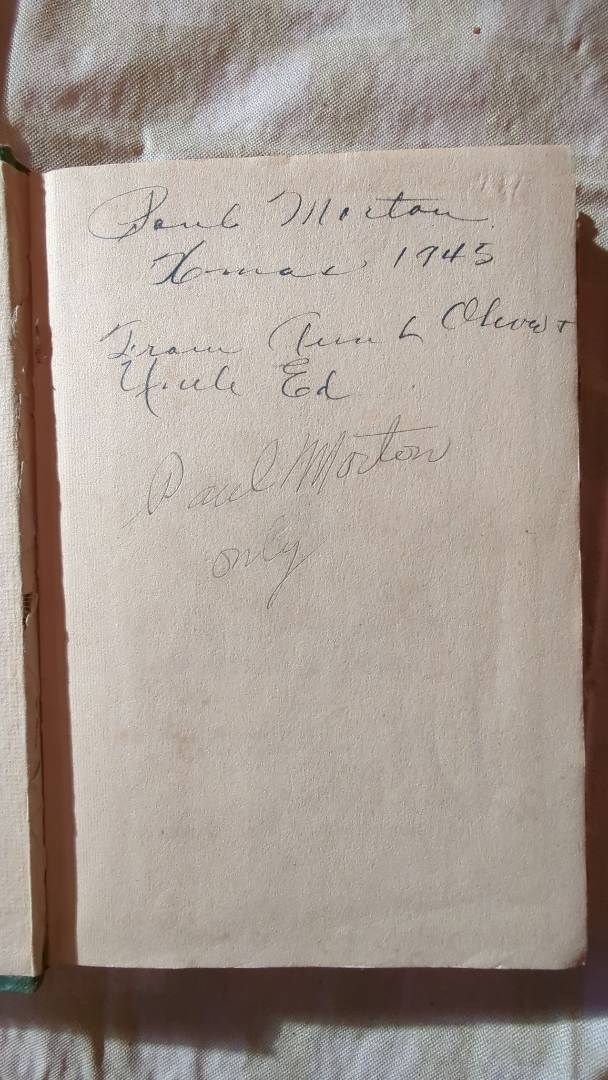 Paul Morton
Xmas 1945
From Aunt Olive +
Uncle Ed
Paul Morton
only